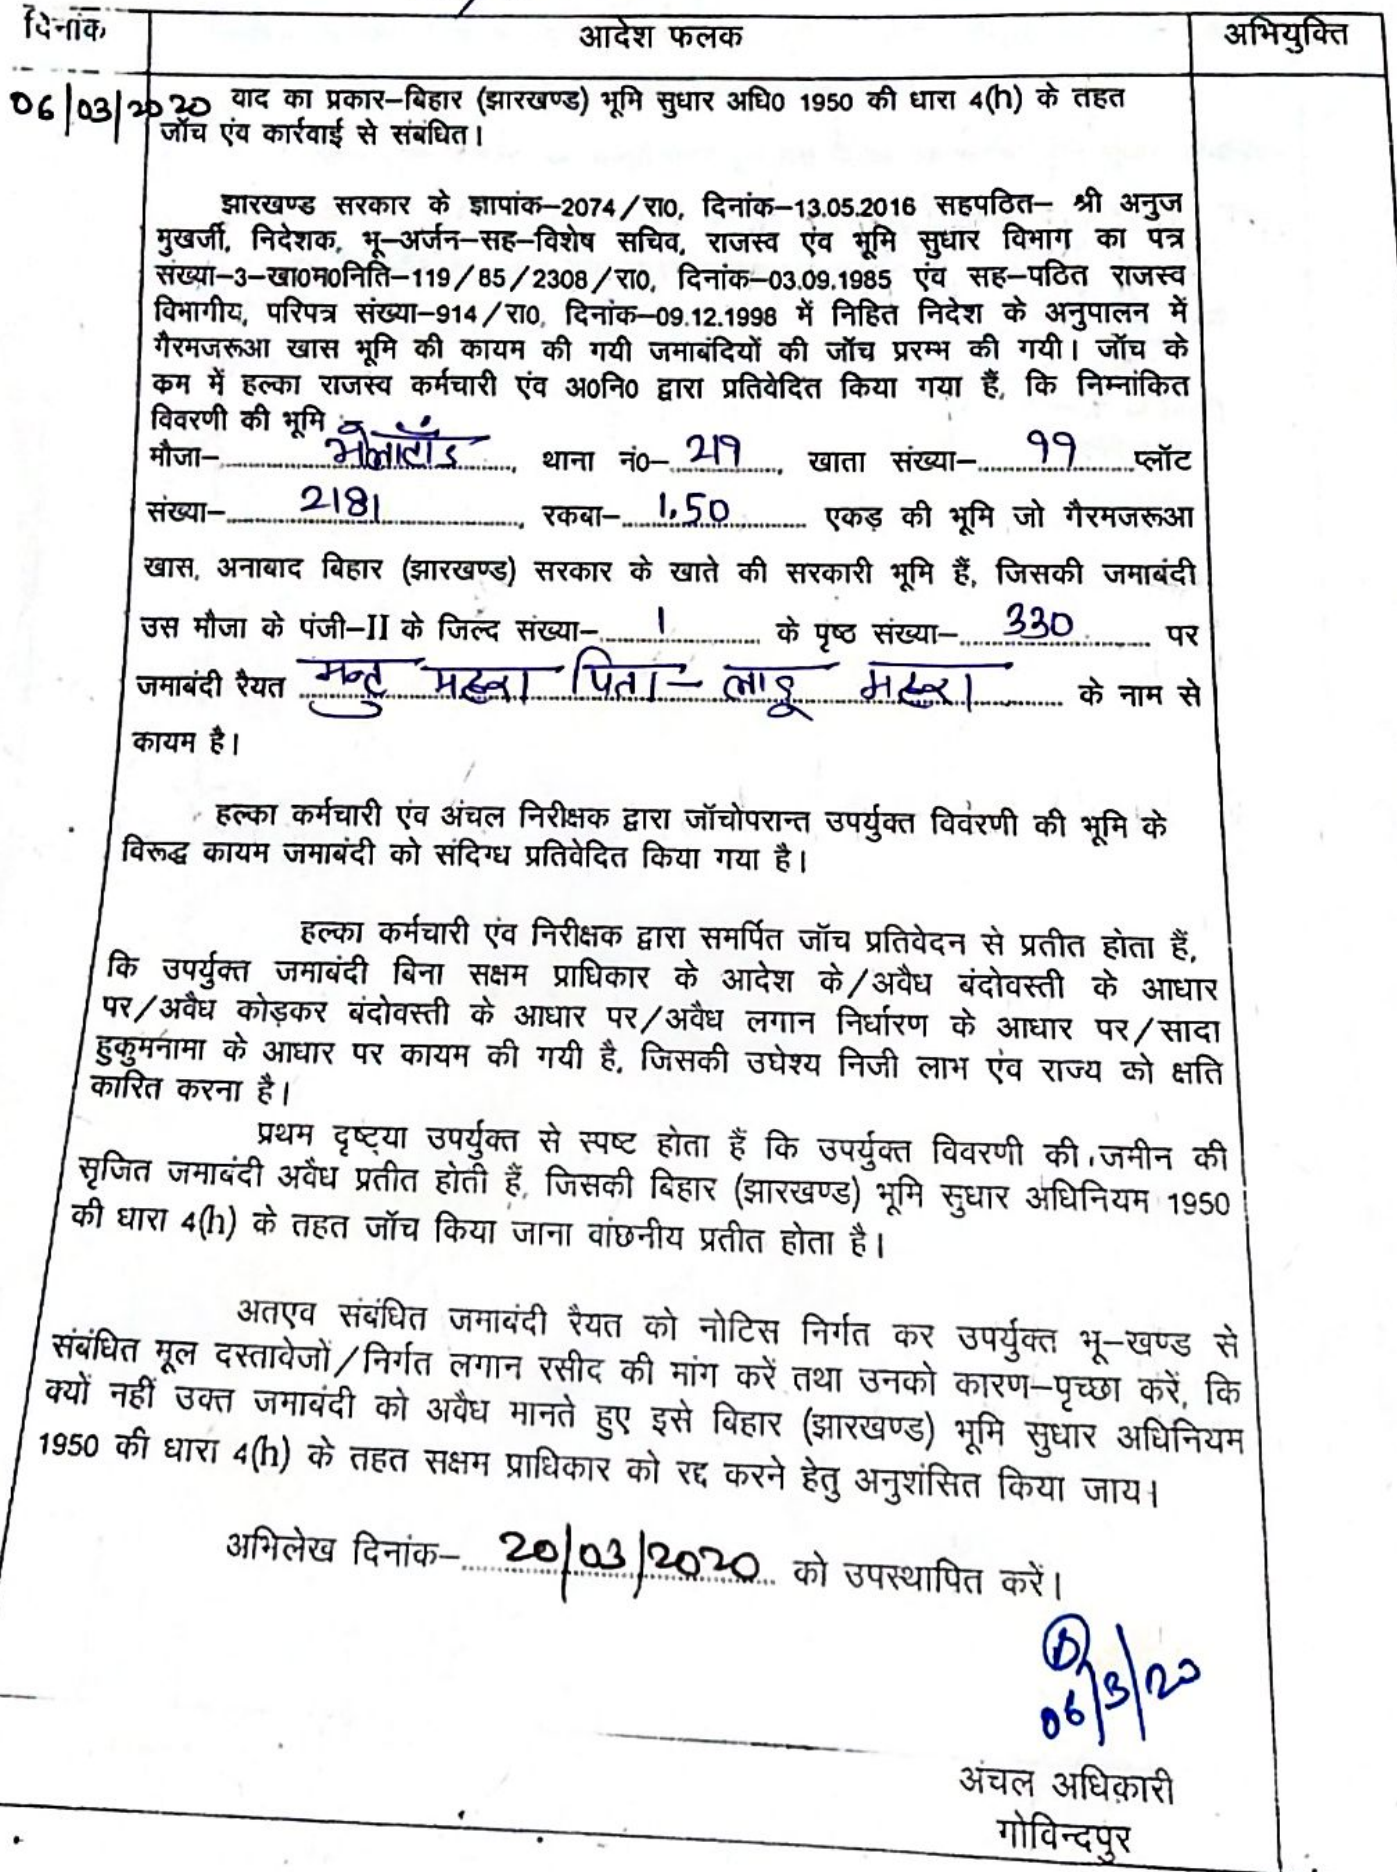 दिनांक आदेश फलक अभियुक्ति
06/03/2020 वाद का प्रकार–बिहार (झारखण्ड) भूमि सुधार अधि0 1950 की धारा 4(h) के तहत
जॉच एंव कार्रवाई से संबंधित।
झारखण्ड सरकार के ज्ञापांक–2074/रा0, दिनांक–13.05.2016 सहपठित– श्री अनुज
मुखर्जी, निदेशक, भू–अर्जन–सह–विशेष सचिव, राजस्व एंव भूमि सुधार विभाग का पत्र
संख्या–3–खा0म0निति–119/85/2308/रा0, दिनांक–03.09.1985 एंव सह–पठित राजस्व
विभागीय, परिपत्र संख्या–914/रा0, दिनांक–09.12.1998 में निहित निदेश के अनुपालन में
गैरमजरूआ खास भूमि की कायम की गयी जमाबंदियों की जॉच प्ररम्भ की गयी। जॉच के
कम में हल्का राजस्व कर्मचारी एंव अ0नि0 द्वारा प्रतिवेदित किया गया हैं, कि निम्नांकित
विवरणी की भूमि
मौजा– थाना नं0– 219, खाता संख्या– 99 प्लॉट
संख्या– 2181, रकबा– 1.50 एकड़ की भूमि जो गैरमजरूआ
खास, अनाबाद बिहार (झारखण्ड) सरकार के खाते की सरकारी भूमि हैं, जिसकी जमाबंदी
उस मौजा के पंजी–II के जिल्द संख्या– 1 के पृष्ठ संख्या– 330 पर
जमाबंदी रैयत मन्टु महरा पिता – लाडू महरा के नाम से
कायम है।
हल्का कर्मचारी एंव अंचल निरीक्षक द्वारा जॉचोपरान्त उपर्युक्त विवरणी की भूमि के
विरूद्ध कायम जमाबंदी को संदिग्ध प्रतिवेदित किया गया है।
हल्का कर्मचारी एंव निरीक्षक द्वारा समर्पित जॉच प्रतिवेदन से प्रतीत होता हैं,
कि उपर्युक्त जमाबंदी बिना सक्षम प्राधिकार के आदेश के/अवैध बंदोवस्ती के आधार
पर/अवैध कोड़कर बंदोवस्ती के आधार पर/अवैध लगान निर्धारण के आधार पर/सादा
हुकुमनामा के आधार पर कायम की गयी है, जिसकी उघेश्य निजी लाभ एंव राज्य को क्षति
कारित करना है।
प्रथम दृष्ट्या उपर्युक्त से स्पष्ट होता हैं कि उपर्युक्त विवरणी की जमीन की
सृजित जमाबंदी अवैध प्रतीत होती हैं, जिसकी बिहार (झारखण्ड) भूमि सुधार अधिनियम 1950
की धारा 4(h) के तहत जॉच किया जाना वांछनीय प्रतीत होता है।
अतएव संबंधित जमाबंदी रैयत को नोटिस निर्गत कर उपर्युक्त भू–खण्ड से
संबंधित मूल दस्तावेजों/निर्गत लगान रसीद की मांग करें तथा उनको कारण–पृच्छा करें, कि
क्यों नहीं उक्त जमाबंदी को अवैध मानते हुए इसे बिहार (झारखण्ड) भूमि सुधार अधिनियम
1950 की धारा 4(h) के तहत सक्षम प्राधिकार को रद्द करने हेतु अनुशंसित किया जाय।
अभिलेख दिनांक– 20/03/2020 को उपस्थापित करें।
06/3/20
अंचल अधिकारी
गोविन्दपुर